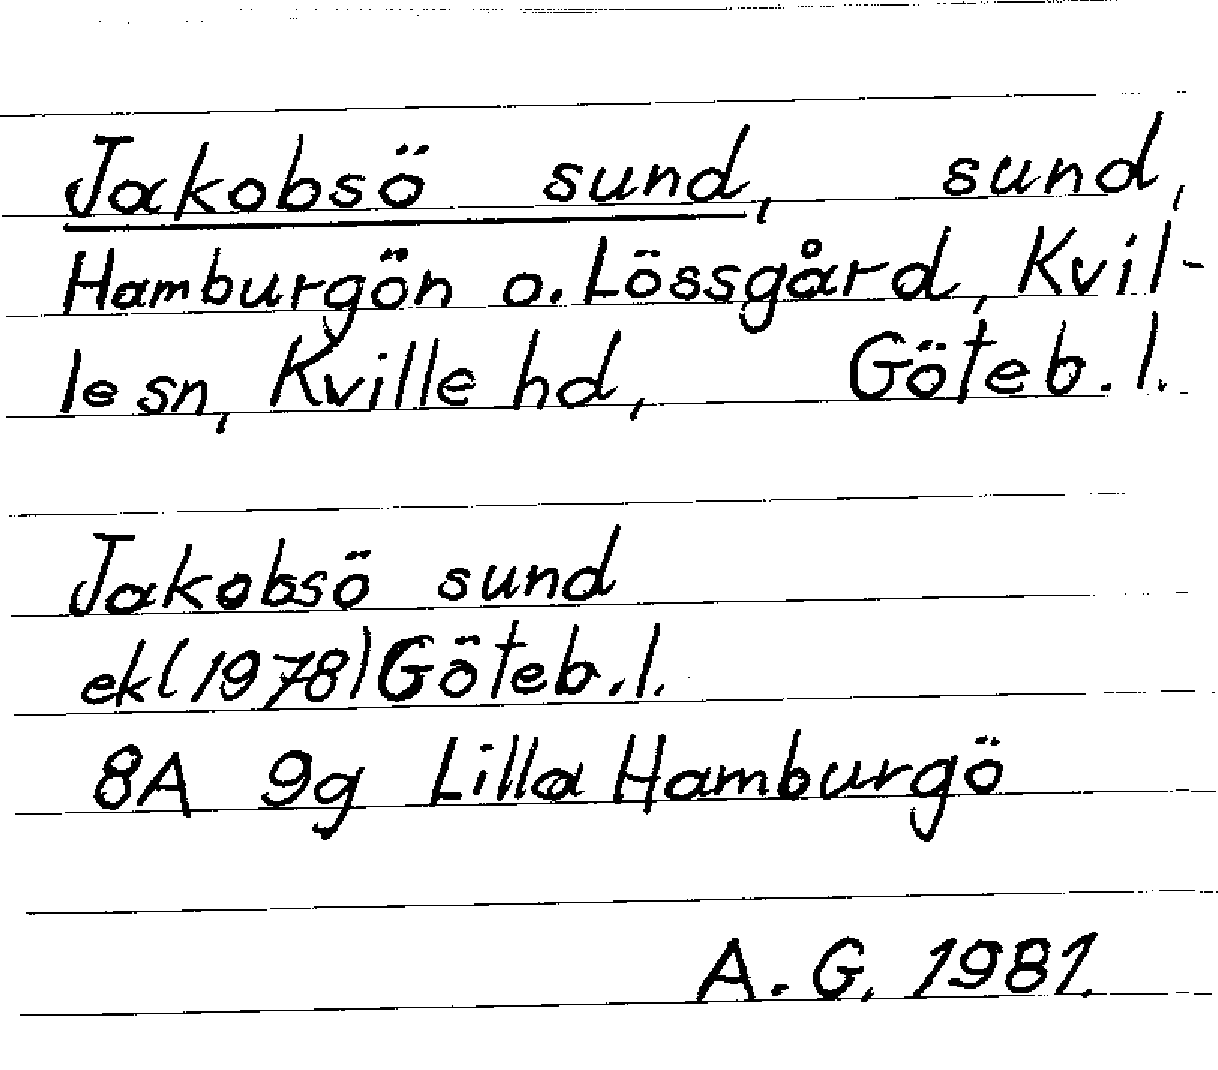 Jakobsö sund, sund,
Hamburgön o. Lössgård, Kvil-
le sn, Kville hd, Göteb. l.
Jakobsö sund
ekl (1978) Göteb. l.
8A 9g Lilla Hamburgö
A. G. 1981.